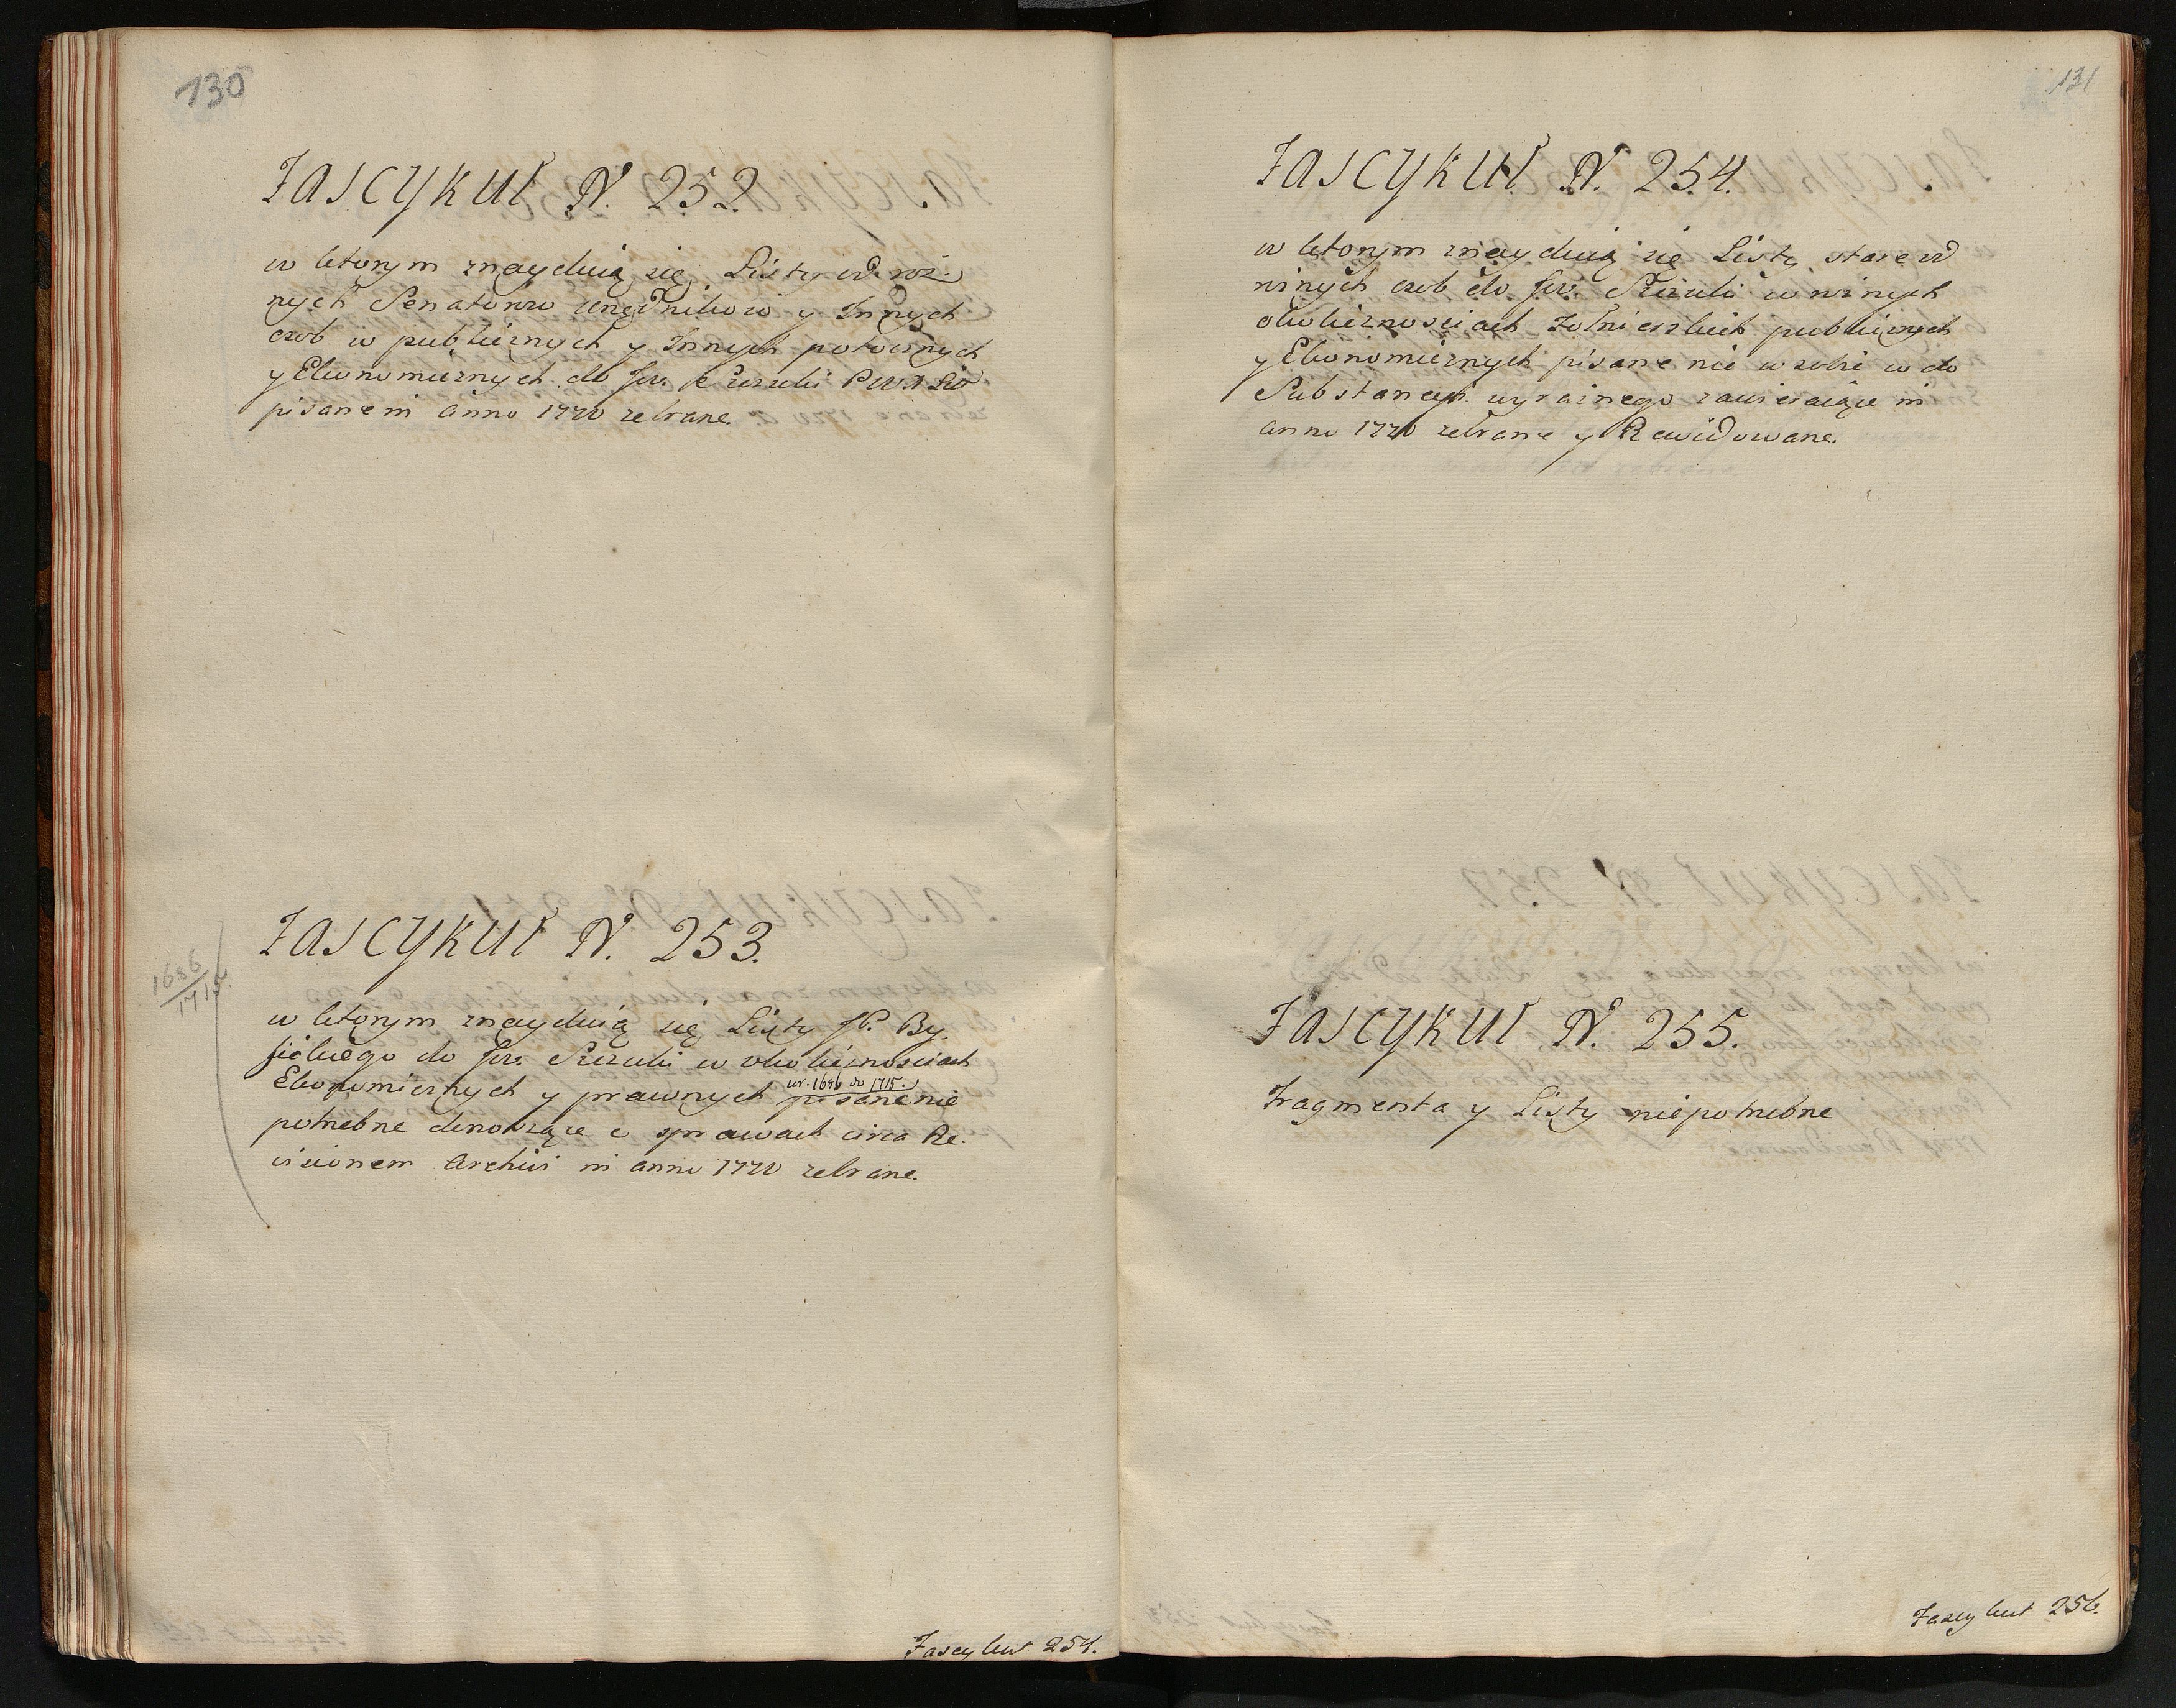 130
Fascykuł N. 252.
w ktorym znayduią się Listy od roż-
nych Senatorow Urzędnikow y Innych
osob w publicznych y Innych potocznych
y Ekonomicznych do Jw. Szczuki
pisane in Anno 1770 zebrane.
Fascykuł N. 253.
1686
1715.
w ktorym znayduią się Listy JP. By-
go do Jw. Szczuki w okolicznosciach
Ekonomicznych y prawnych pisane nie
w r. 1686 do 1715.
potrzebne donoszące o sprawach circa Re-
visionem Archivi in anno 1770 zebrane.
Fascykuł 254.
131
Fascykuł N. 254.
w ktorym znayduią się Listy stare od
roznych osob do Jw. Szczuki w roznych
okolicznosciach Zołnierskich publicznych
y Ekonomicznych pisane nic w sobie co do
Substancyi wyraznego zawieraiące in
anno 1770 zebrane y Rewidowane.
Fascykuł N. 255.
Fragmenta y Listy niepotrzebne
Fascykuł 256.